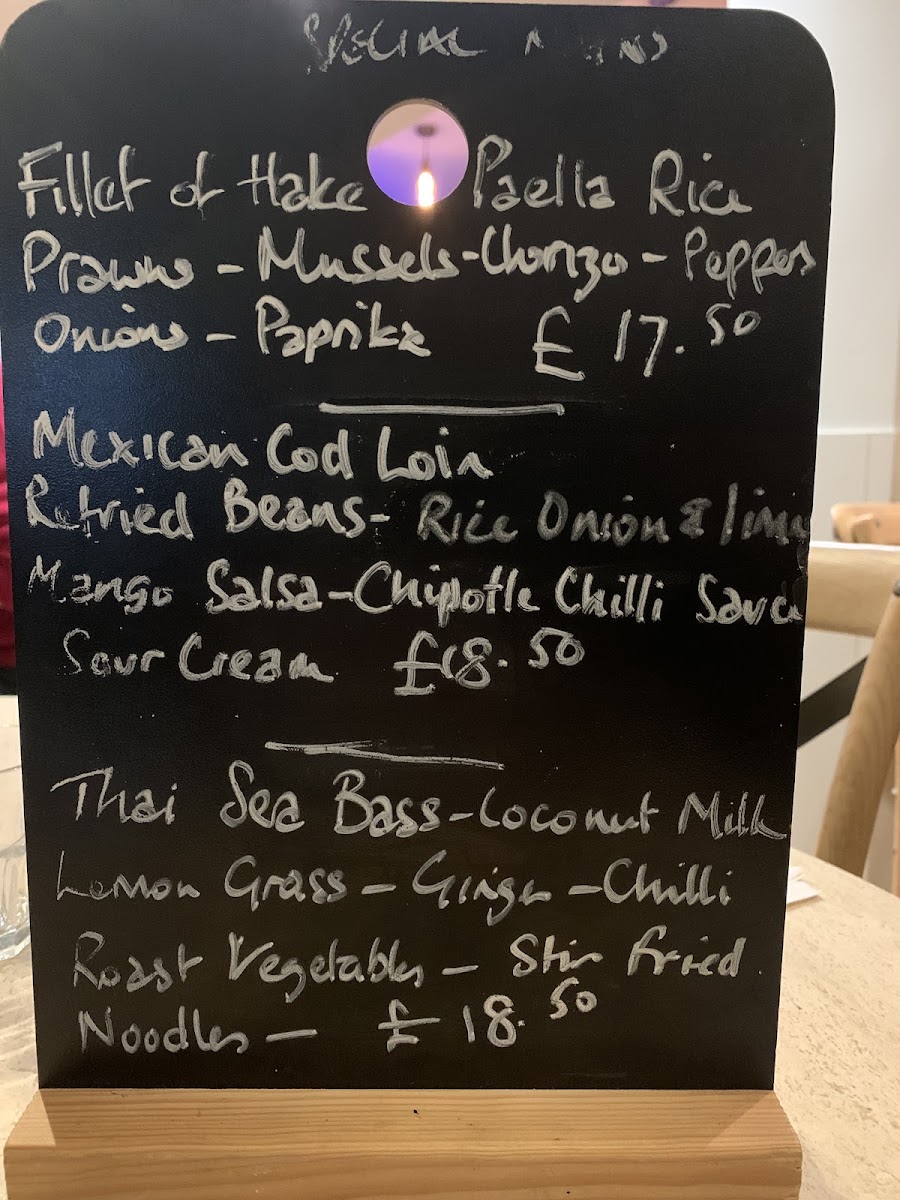 SPECIAL
Fillet of Hake Paella Rice
Prawns - Mussels - Chorizo - Peppers
Onions - Paprika £17.50
Mexican Cod Loin
Refried Beans - Rice Onion & lime
Mango Salsa - Chipotle Chilli Sauce
Sour Cream £18.50
Thai Sea Bass - Coconut Milk
Lemon Grass - Ginger - Chilli
Roast Vegetables - Stir fried
Noodles - £18.50